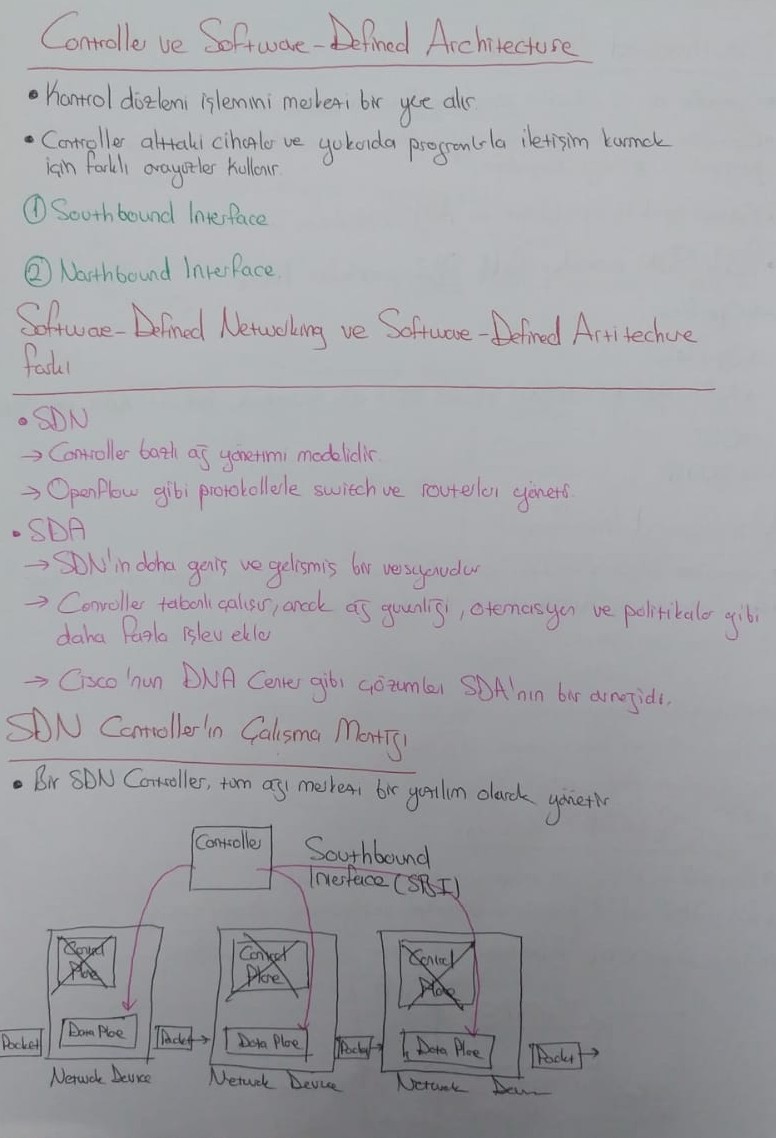 Controller ve Software-Defined Architecture
• Kontrol düzlemi işlemini merkezi bir yere alır.
• Controller alttaki cihazlar ve yukarıda programlarla iletişim kurmak
için farklı arayüzler kullanır.
① Southbound Interface
② Northbound Interface.
Software-Defined Networking ve Software-Defined Artitechure
farkı
• SDN
→ Controller bazlı ağ yönetimi modelidir.
→ OpenFlow gibi protokollerle switch ve routerları yönetir.
• SDA
→ SDN'in daha geniş ve gelişmiş bir versiyonudur
→ Controller tabanlı çalışır, ancak ağ güvenliği, otomasyon ve politikalar gibi
daha fazla işlev ekler
→ Cisco'nun DNA Center gibi çözümleri SDA'nın bir örneğidir.
SDN Controller'ın Çalışma Mantığı
• Bir SDN Controller, tüm ağı merkezi bir yazılım olarak yönetir
Controller
Southbound
Interface (SBI)
Control
Plane
Control
Plane
Control
Plane
Packet
Data Plane
Packet
Data Plane
Packet
Data Plane
Packet
Network Device
Network Device
Network